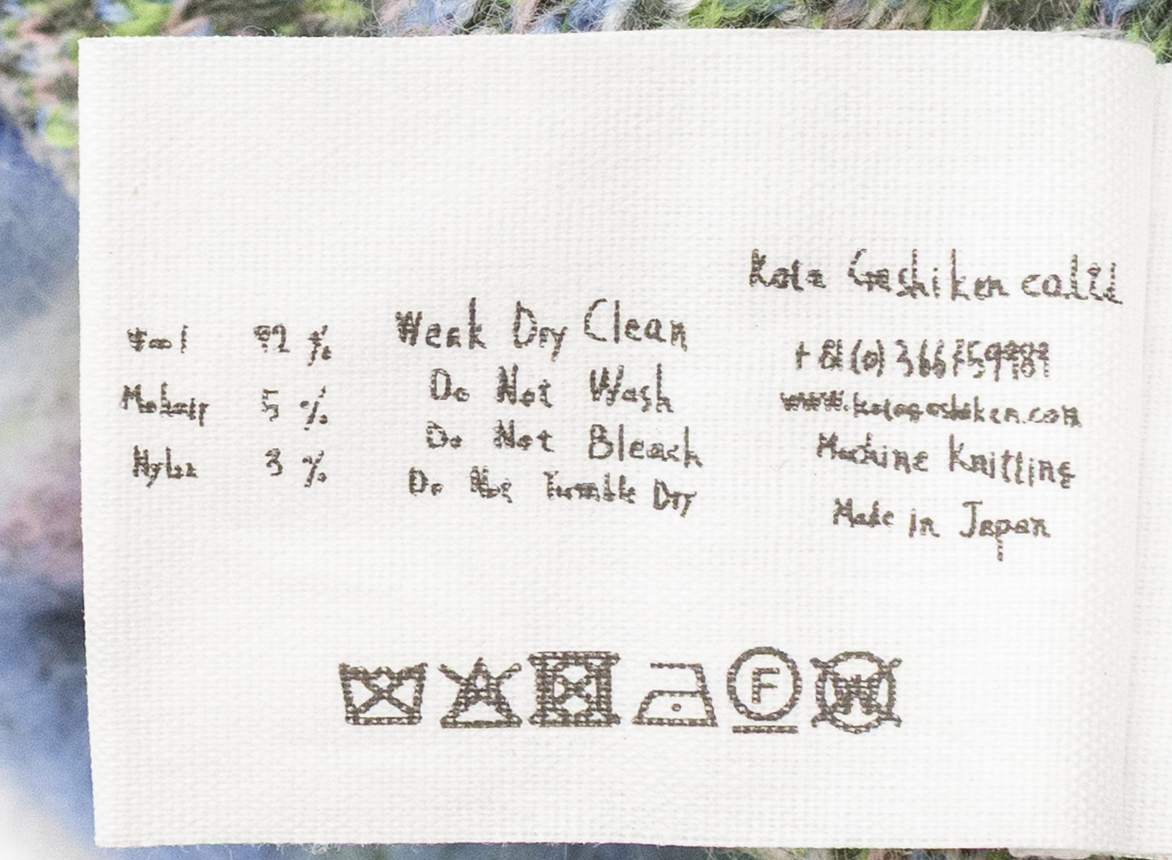 Wool 92 %
Mohair 5 %
Nylon 3 %
Weak Dry Clean
Do Not Wash
Do Not Bleach
Do Not Tumble Dry
Kota Gushiken co.,ltd
www.kotagushiken.com
Machine Knitting
Made in Japan
F
W